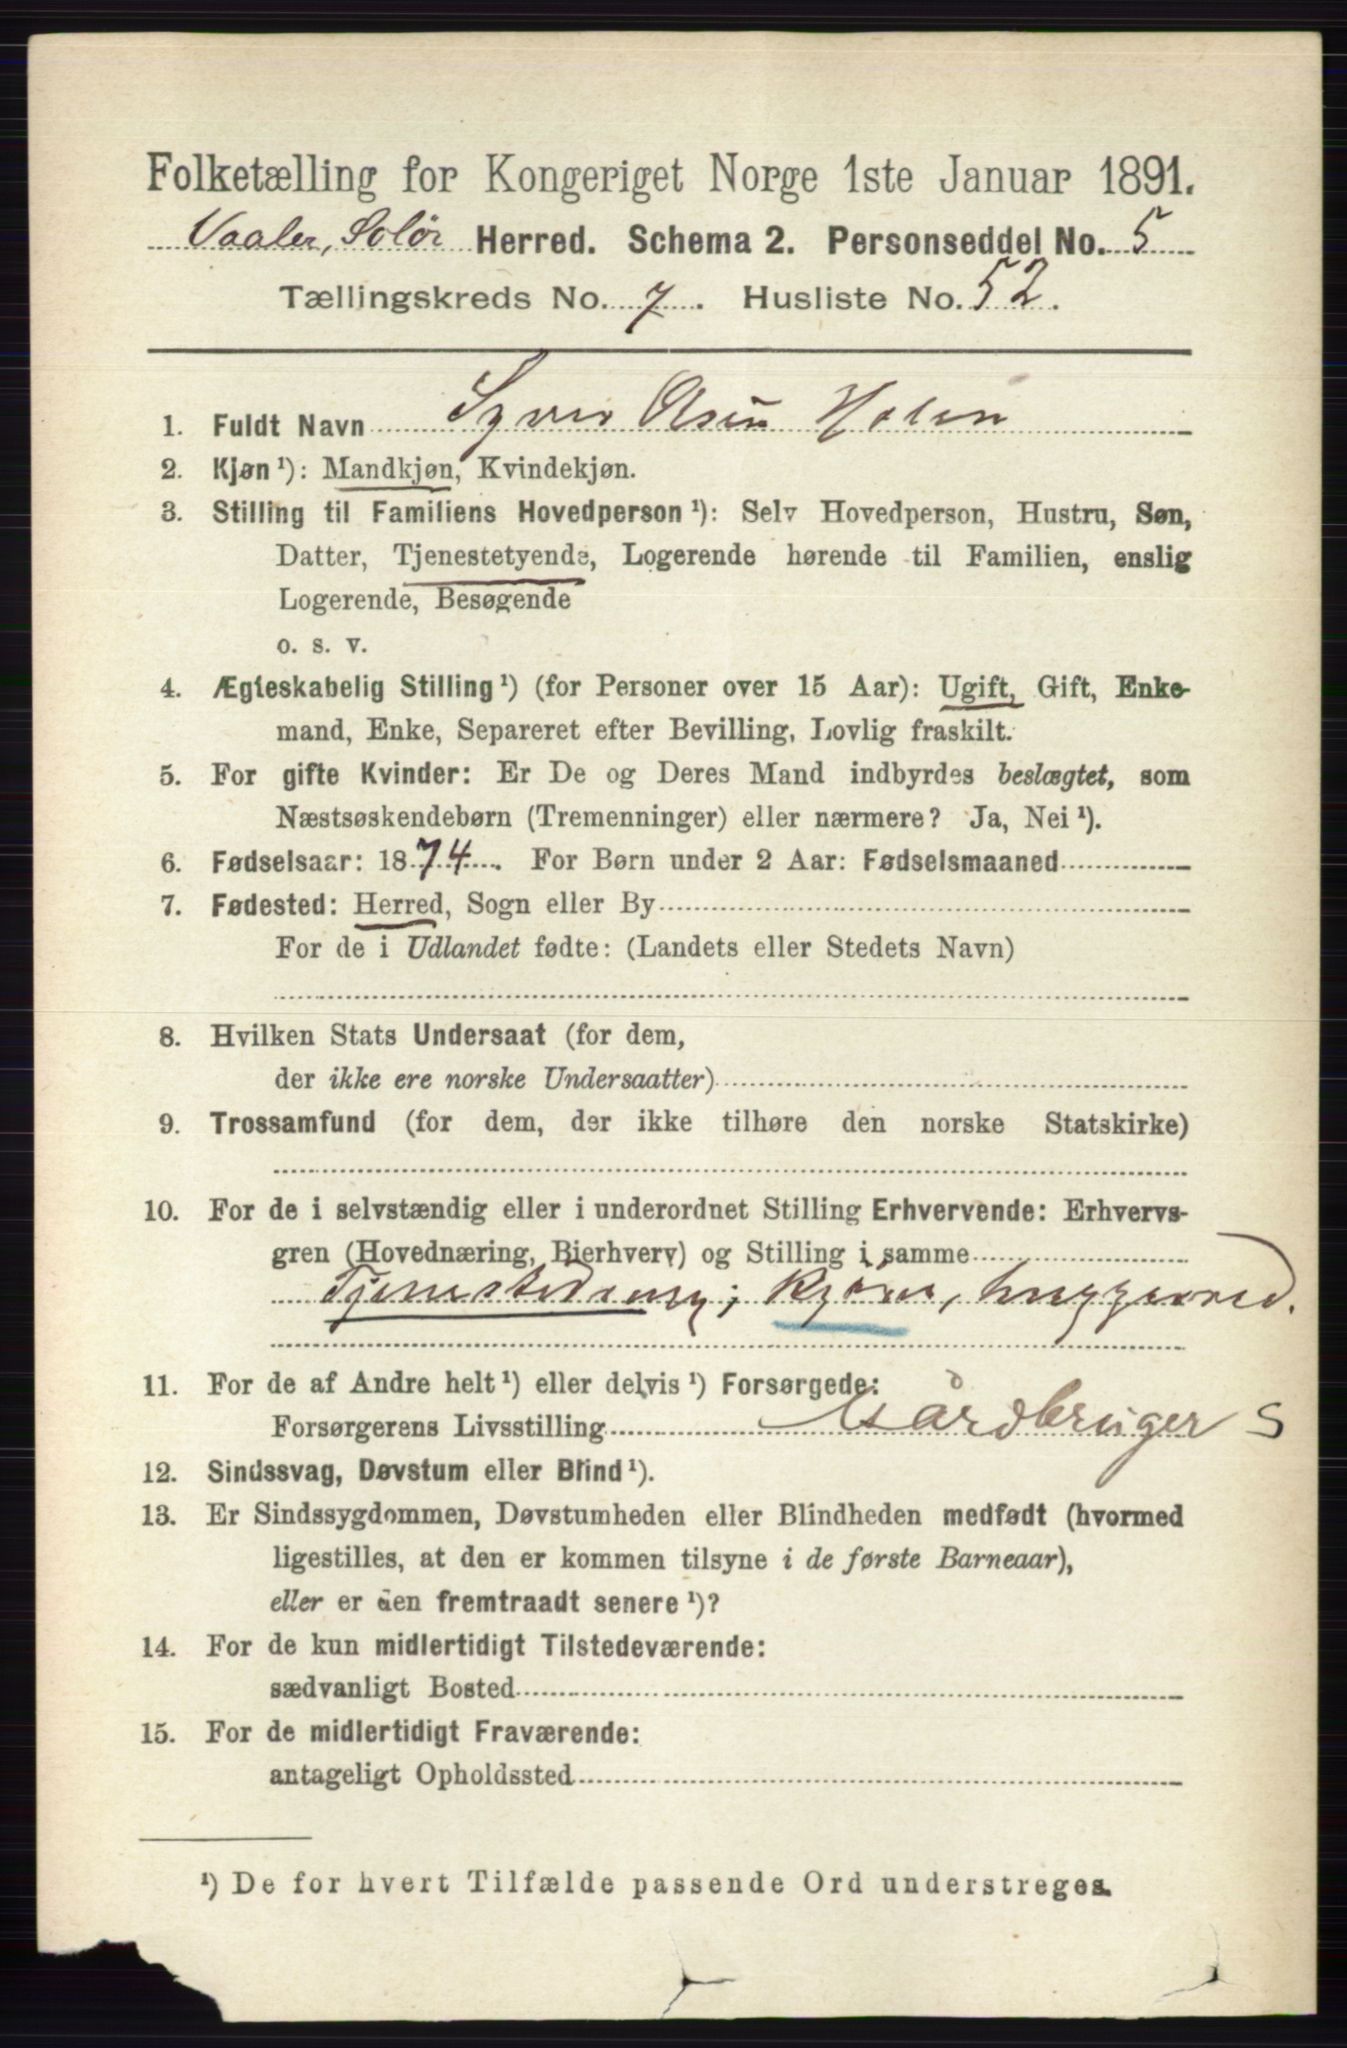 Folketælling for Kongeriget Norge 1ste Januar 1891.
Vaaler, Solør Herred. Schema 2. Personseddel No. 5
Tællingskreds No. 7. Husliste No. 52.
1. Fuldt Navn Syver Olsen Holen
2. Kjøn¹): Mandkjøn, Kvindekjøn.
3. Stilling til Familiens Hovedperson¹): Selv Hovedperson, Hustru, Søn,
Datter, Tjenestetyende, Logerende hørende til Familien, enslig
Logerende, Besøgende
o. s. v.
4. Ægteskabelig Stilling¹) (for Personer over 15 Aar): Ugift, Gift, Enke-
mand, Enke, Separeret efter Bevilling, Lovlig fraskilt.
5. For gifte Kvinder: Er De og Deres Mand indbyrdes beslægtet, som
Næstsøskendebørn (Tremenninger) eller nærmere? Ja, Nei¹).
6. Fødselsaar: 1874. For Børn under 2 Aar: Fødselsmaaned
7. Fødested: Herred, Sogn eller By
For de i Udlandet fødte: (Landets eller Stedets Navn)
8. Hvilken Stats Undersaat (for dem,
der ikke ere norske Undersaatter)
9. Trossamfund (for dem, der ikke tilhøre den norske Statskirke)
10. For de i selvstændig eller i underordnet Stilling Erhvervende: Erhvervs-
gren (Hovednæring, Bierhverv) og Stilling i samme
Tjenestedreng; kjører, huggerved.
11. For de af Andre helt¹) eller delvis¹) Forsørgede:
Forsørgerens Livsstilling Gårdbruger S
12. Sindssvag, Døvstum eller Blind¹).
13. Er Sindssygdommen, Døvstumheden eller Blindheden medfødt (hvormed
ligestilles, at den er kommen tilsyne i de første Barneaar),
eller er den fremtraadt senere¹)?
14. For de kun midlertidigt Tilstedeværende:
sædvanligt Bosted
15. For de midlertidigt Fraværende:
antageligt Opholdssted
¹) De for hvert Tilfælde passende Ord understreges.